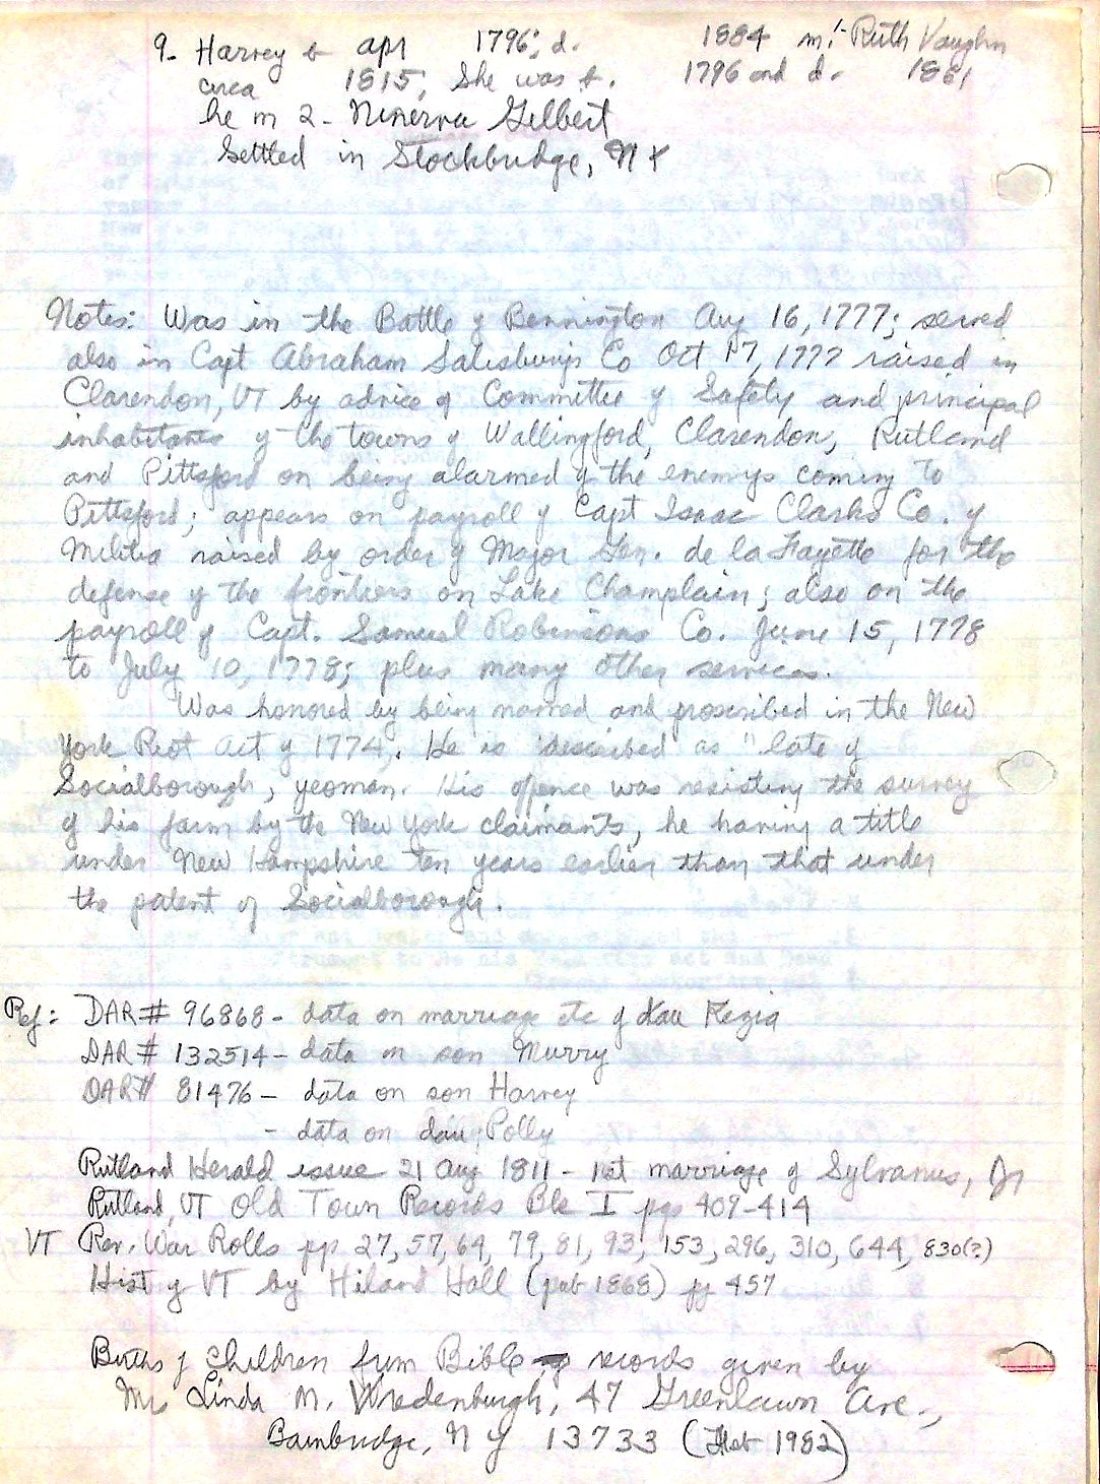 9- Harvey b apr 1796; d. 1884 m1- Ruth Vaughn
circa 1815; She was b. 1796 and d. 1881
he m 2- Minerva Gilbert
Settled in Stockbridge, NY
Notes: Was in the Battle of Bennington Aug 16, 1777; served
also in Capt Abraham Salisburys Co Oct 17, 1777 raised in
Clarendon, VT by advice of Committee of Safety and principal
inhabitants of the towns of Wallingford, Clarendon, Rutland
and Pittsford on being alarmed of the enemys coming to
Pittsford; appears on payroll of Capt Isaac Clarks Co. of
Militia raised by order of Major Gen. de la Fayette for the
defense of the frontiers on Lake Champlain; also on the
payroll of Capt. Samuel Robinsons Co. June 15, 1778
to July 10, 1778; plus many other services.
Was honored by being named and proscribed in the New
York Riot Act of 1774. He is described as "late of
Socialborough, yeoman. His offence was resisting the survey
of his farm by the New York claimants, he having a title
under New Hampshire ten years earlier than that under
the patent of Socialborough.
Ref: DAR# 96868- data on marriage etc of dau Kezia
DAR# 132514- data on son Murry
DAR# 81476- data on son Harvey
- data on dau Polly
Rutland Herald issue 21 Aug 1811- 1st marriage of Sylvanus, Jr
Rutland, VT Old Town Records Bk I pgs 409-414
VT Rev. War Rolls pp 27, 57, 64, 79, 81, 93, 153, 296, 310, 644, 830(?)
Hist of VT by Hiland Hall (pub 1868) pg 457
Births of Children from Bible records given by
Ms Linda M. Vredenburgh, 47 Greenlawn Ave.,
Bainbridge, NY 13733 (Feb 1982)